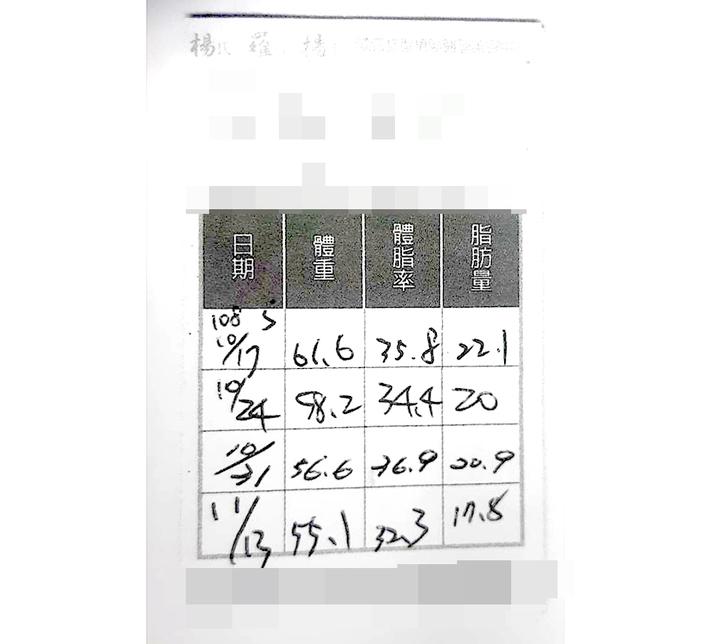 日期 體重 體脂率 脂肪量
108 5
10/17 61.6 35.8 22.1
10/24 58.2 34.4 20
10/31 56.6 36.9 20.9
11/13 55.1 32.3 17.8